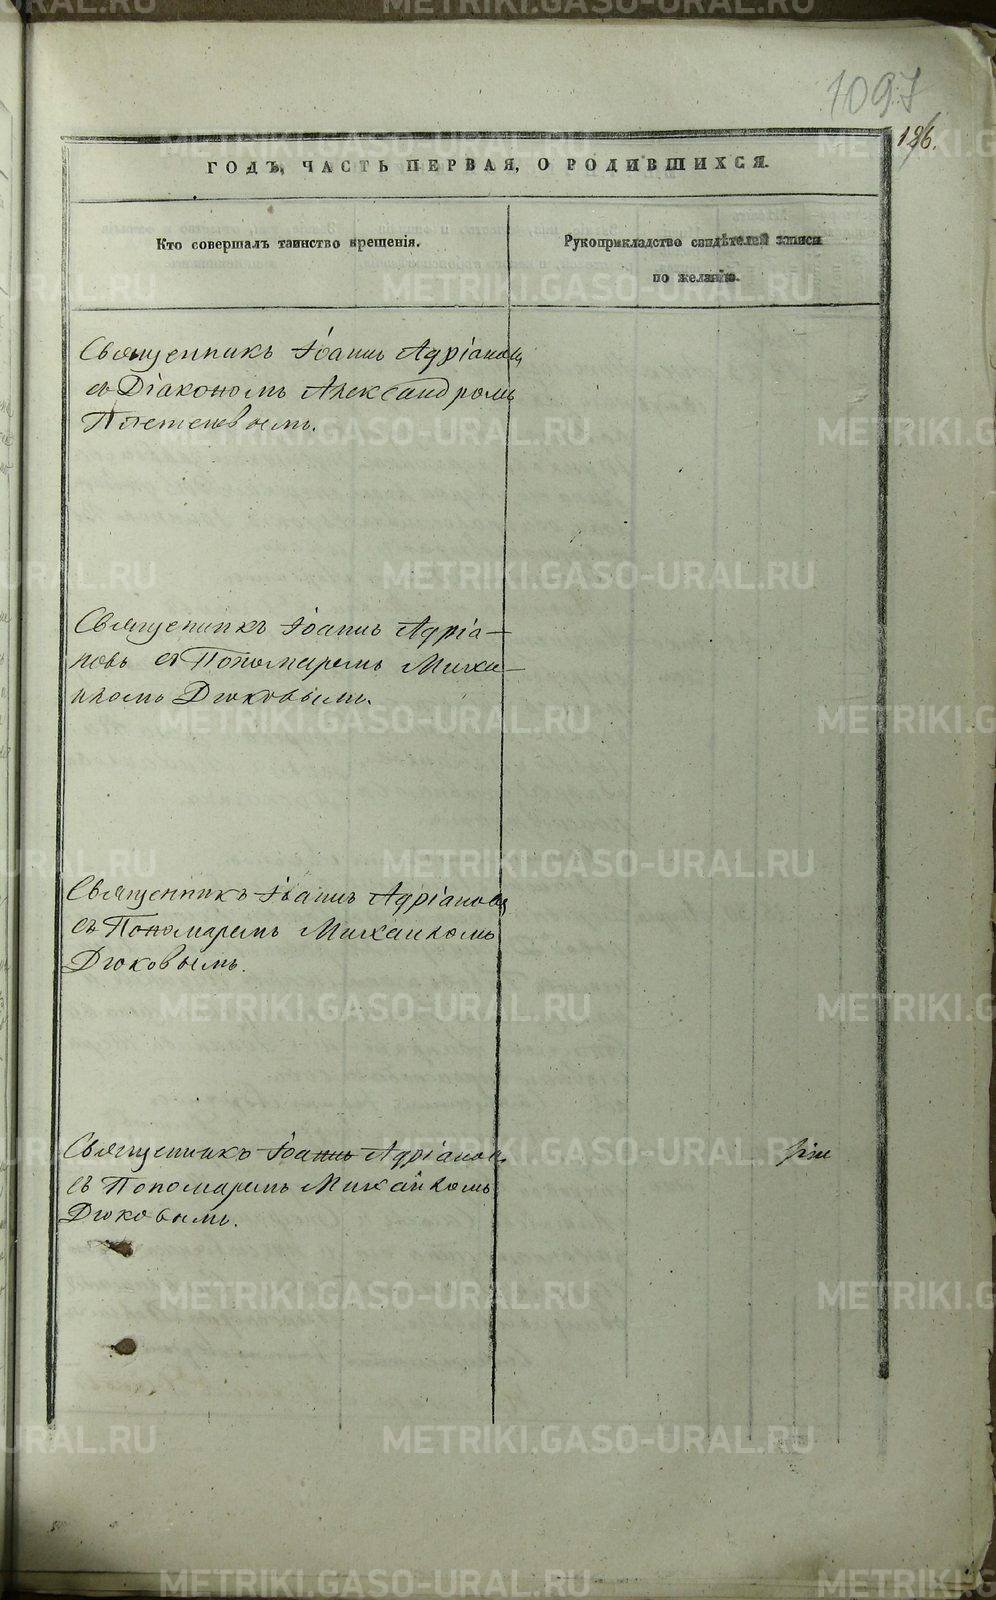 1097
186.
ГОДЪ, ЧАСТЬ ПЕРВАЯ, О РОДИВШИХСЯ.
Кто совершалъ таинство крещенія.
Рукоприкладство свидѣтелей записи
по желанію.
Священникъ Іоаннъ Адріановъ
съ Діакономъ Александромъ
Плетеневымъ.
Священникъ Іоаннъ Адріа-
новъ съ Пономаремъ Михаи-
ломъ Дюковымъ.
Священникъ Іоаннъ Адріановъ
съ Пономаремъ Михаиломъ
Дюковымъ.
Священникъ Іоаннъ Адріановъ
съ Пономаремъ Михаиломъ
Дюковымъ.
METRIKI.GASO-URAL.RU